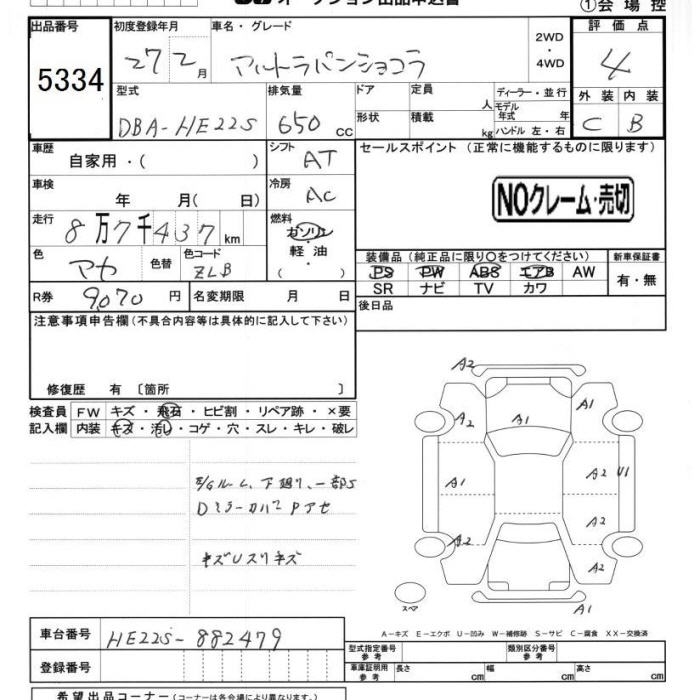 オークション出品申込書 ①会場控
出品番号 初度登録年月 車名・グレード 2WD ・ 4WD 評価点
5334 27 2月 アルトラパンショコラ 4
型式 排気量 ドア 定員 人 ディーラー・並行 外装 内装
DBA-HE22S 650 CC 形状 積載 kg モデル年式 年 ハンドル 左・右 C B
車歴 自家用・( ) シフト AT セールスポイント (正常に機能するものに限ります)
車検 年 月( 日) 冷房 AC
NOクレーム・売切
走行 8万7千437km 燃料 ガソリン・軽油( )
色 アカ 色替 色コード ZLB
装備品 (純正品に限り〇をつけてください) 新車保証書
PS PW ABS エアB AW 有・無
SR ナビ TV カワ
R券 9,070円 名変期限 月 日 後日品
注意事項申告欄(不具合内容等は具体的に記入して下さい)
修復歴 有 〔箇所 〕
検査員 FW キズ・飛石・ヒビ割・リペア跡・×要
記入欄 内装 キズ・汚れ・コゲ・穴・スレ・キレ・破レ
下廻り、一部S
DミラーカバーPアセ
キズUスリキズ
A2
A2 A1 A1
A1 A2 U1
A2
A2 A2
スペア A1
A-キズ E-エクボ U-凹み W-補修跡 S-サビ C-腐食 XX-交換済
車台番号 HE22S-882479
型式指定番号 参考 類別区分番号 参考
登録番号 車庫証明用 参考 長さ cm 幅 cm 高さ cm
希望出品コーナー(コーナーは各会場により異なります。)